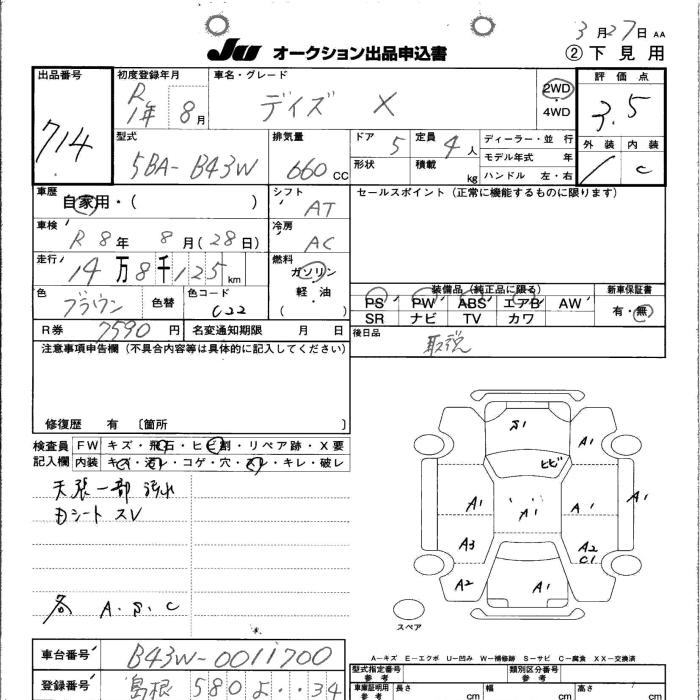 3月27日 AA
JU オークション出品申込書 ② 下見用
出品番号 714
初度登録年月 R1年 8月
車名・グレード デイズ X
2WD
4WD
評価点 3.5
外装 内装 C
型式 5BA-B43W
排気量 660cc
ドア 5
定員 4人
ディーラー・並行
モデル年式 年
形状
積載 kg
ハンドル 左・右
車歴 自家用・( )
シフト AT
セールスポイント(正常に機能するものに限ります)
車検 R8年 8月(28日)
冷房 AC
走行 14万8千125km
燃料 ガソリン
軽・油
( )
色 ブラウン 色替
色コード C22
装備品(純正品に限る)
PS PW ABS エアB AW
SR ナビ TV カワ
新車保証書
有・無
R券 7590円
名変通知期限 月 日
後日品 取説
注意事項申告欄(不具合内容等は具体的に記入してください)
修復歴 有 〔箇所 〕
検査員 FW キズ・飛石・ヒビ割・リペア跡・X要
記入欄 内装 キズ・汚レ・コゲ・穴・スレ・キレ・破レ
天張一部汚れ
Dシート スレ
各 A.S.C
S1
A1
ヒビ
A1
A1
A1
A1
A3
A2
C1
A2
A1
スペア
A-キズ E-エクボ U-凹み W-補修跡 S-サビ C-腐食 XX-交換済
車台番号 B43W-0011700
登録番号 島根 580 よ ・・34
型式指定番号 参考
類別区分番号 参考
車庫証明用 参考
長さ cm
幅 cm
高さ cm